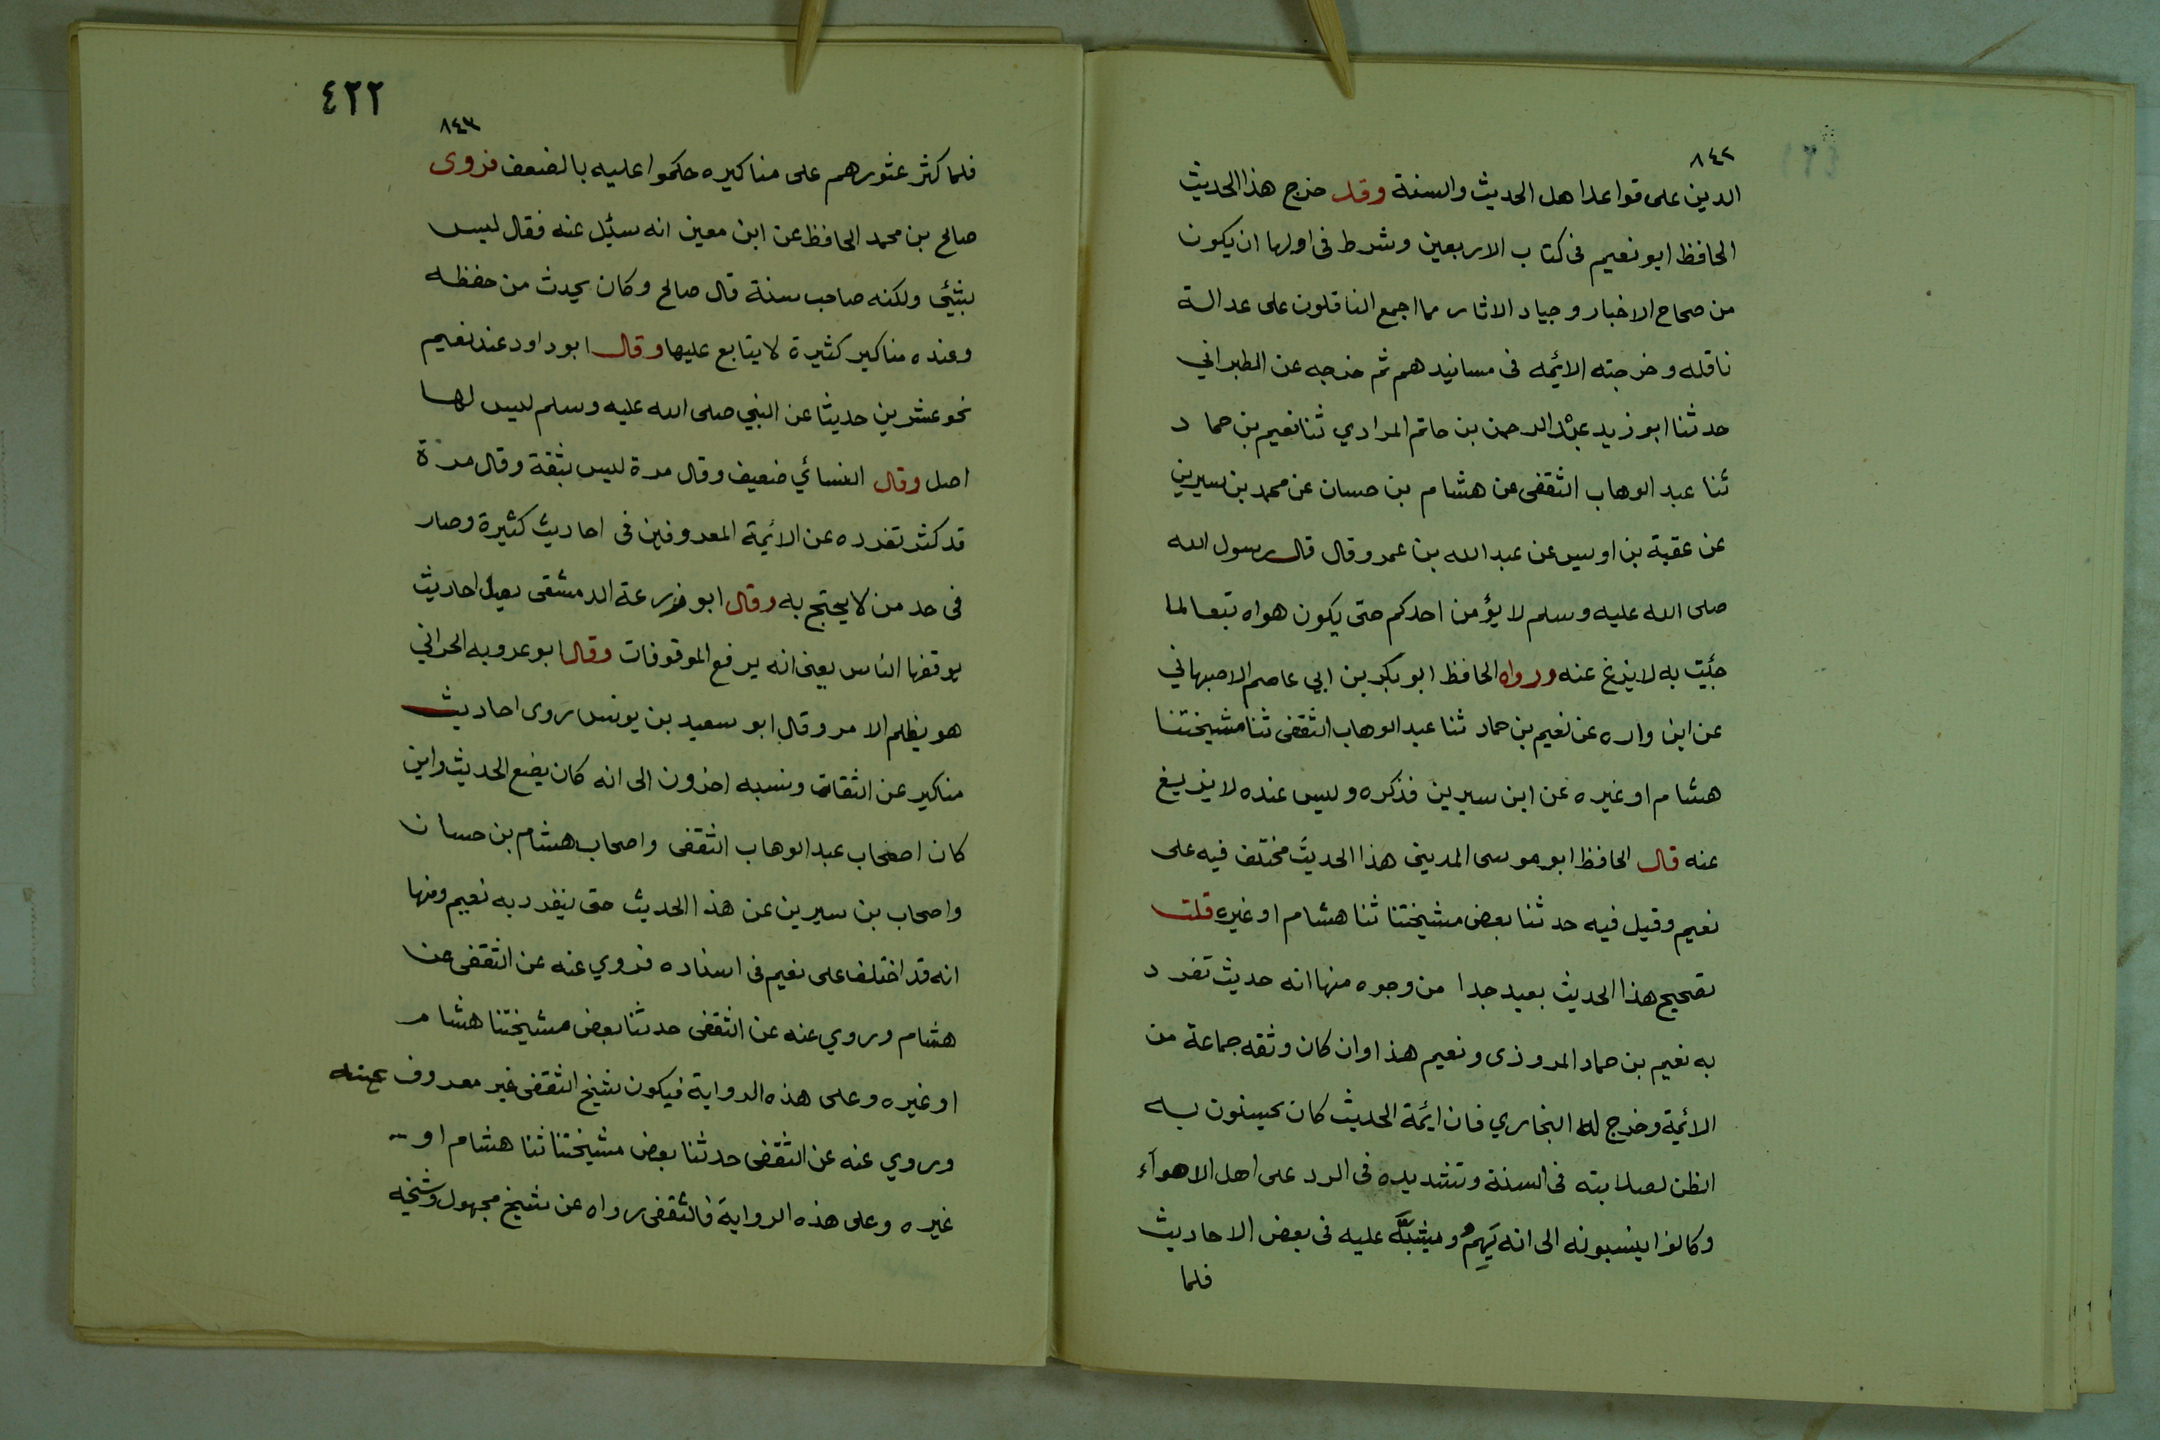 ٨٤٢
الدين على قواعد اهل الحديث والسنة وقد خرج هذا الحديث
الحافظ ابو نعيم فى كتاب الاربعين وشرط فى اولها ان يكون
من صحاح الاخبار وجياد الاثار مما اجمع الناقلون على عدالة
ناقله وخرجته الائمه فى مسانيدهم ثم خرجه عن الطبراني
حدثنا ابو زيد عبد الرحمن بن حاتم المرادي ثنا نعيم بن حماد
ثنا عبد الوهاب الثقفى عن هشام بن حسان عن محمد بن سيرين
عن عقبة بن اوس عن عبد الله بن عمرو قال قال رسول الله
صلى الله عليه وسلم لا يؤمن احدكم حتى يكون هواه تبعا لما
جئت به لا يزغ عنه ورواه الحافظ ابو بكر بن ابي عاصم الاصبهاني
عن ابن واره عن نعيم بن حماد ثنا عبد الوهاب الثقفى ثنا مشيختنا
هشام او غيره عن ابن سيرين فذكره وليس عنده لا يزيغ
عنه قال الحافظ ابو موسى المديني هذا الحديث مختلف فيه على
نعيم وقيل فيه حدثنا بعض مشيختنا ثنا هشام او غيره قلت
تصحيح هذا الحديث بعيد جدا من وجوه منها انه حديث تفرد
به نعيم بن حماد المروزى ونعيم هذا وان كان وثقه جماعة من
الائمة وخرج له البخاري فان ائمة الحديث كان يحسنون به
الظن لصلابته فى السنة وتشديده فى الرد على اهل الاهوآء
وكانوا ينسبونه الى انه يَهِمُ ومشبَّه عليه فى بعض الاحاديث
فلما
٤٢٢
٨٤٣
فلما كثر عثورهم على مناكيره حكموا عليه بالضعف فروى
صالح بن محمد الحافظ عن ابن معين انه سئل عنه فقال ليس
بشئ ولكنه صاحب سنة قال صالح وكان يحدث من حفظه
وعنده مناكير كثيرة لا يتابع عليها وقال ابو داود عند نعيم
نحو عشرين حديثا عن النبي صلى الله عليه وسلم ليس لها
اصل وقال النسائي ضعيف وقال مرة ليس بثقة وقال مرة
قد كثر تفرده عن الائمة المعروفين فى احاديث كثيرة وصار
فى حد من لا يحتج به وقال ابو زرعة الدمشقى يصل احاديث
يوقفها الناس يعنى انه يرفع الموقوفات وقال ابو عروبه الحراني
هو يظلم الامر وقال ابو سعيد بن يونس روى احاديث
مناكير عن الثقات ونسبه اخرون الى انه كان يضع الحديث واين
كان اصحاب عبد الوهاب الثقفى واصحاب هشام بن حسان
واصحاب بن سيرين عن هذا الحديث حتى ينفرد به نعيم ومنها
انه قد اختلف على نعيم فى اسناده فروي عنه عن الثقفى عن
هشام وروي عنه عن الثقفى حدثنا بعض مشيختنا هشام
او غيره وعلى هذه الرواية فيكون شيخ الثقفى غير معروف عينه
وروي عنه عن الثقفى حدثنا بعض مشيختنا ثنا هشام او
غيره وعلى هذه الرواية فالثقفى رواه عن شيخ مجهول وشيخه